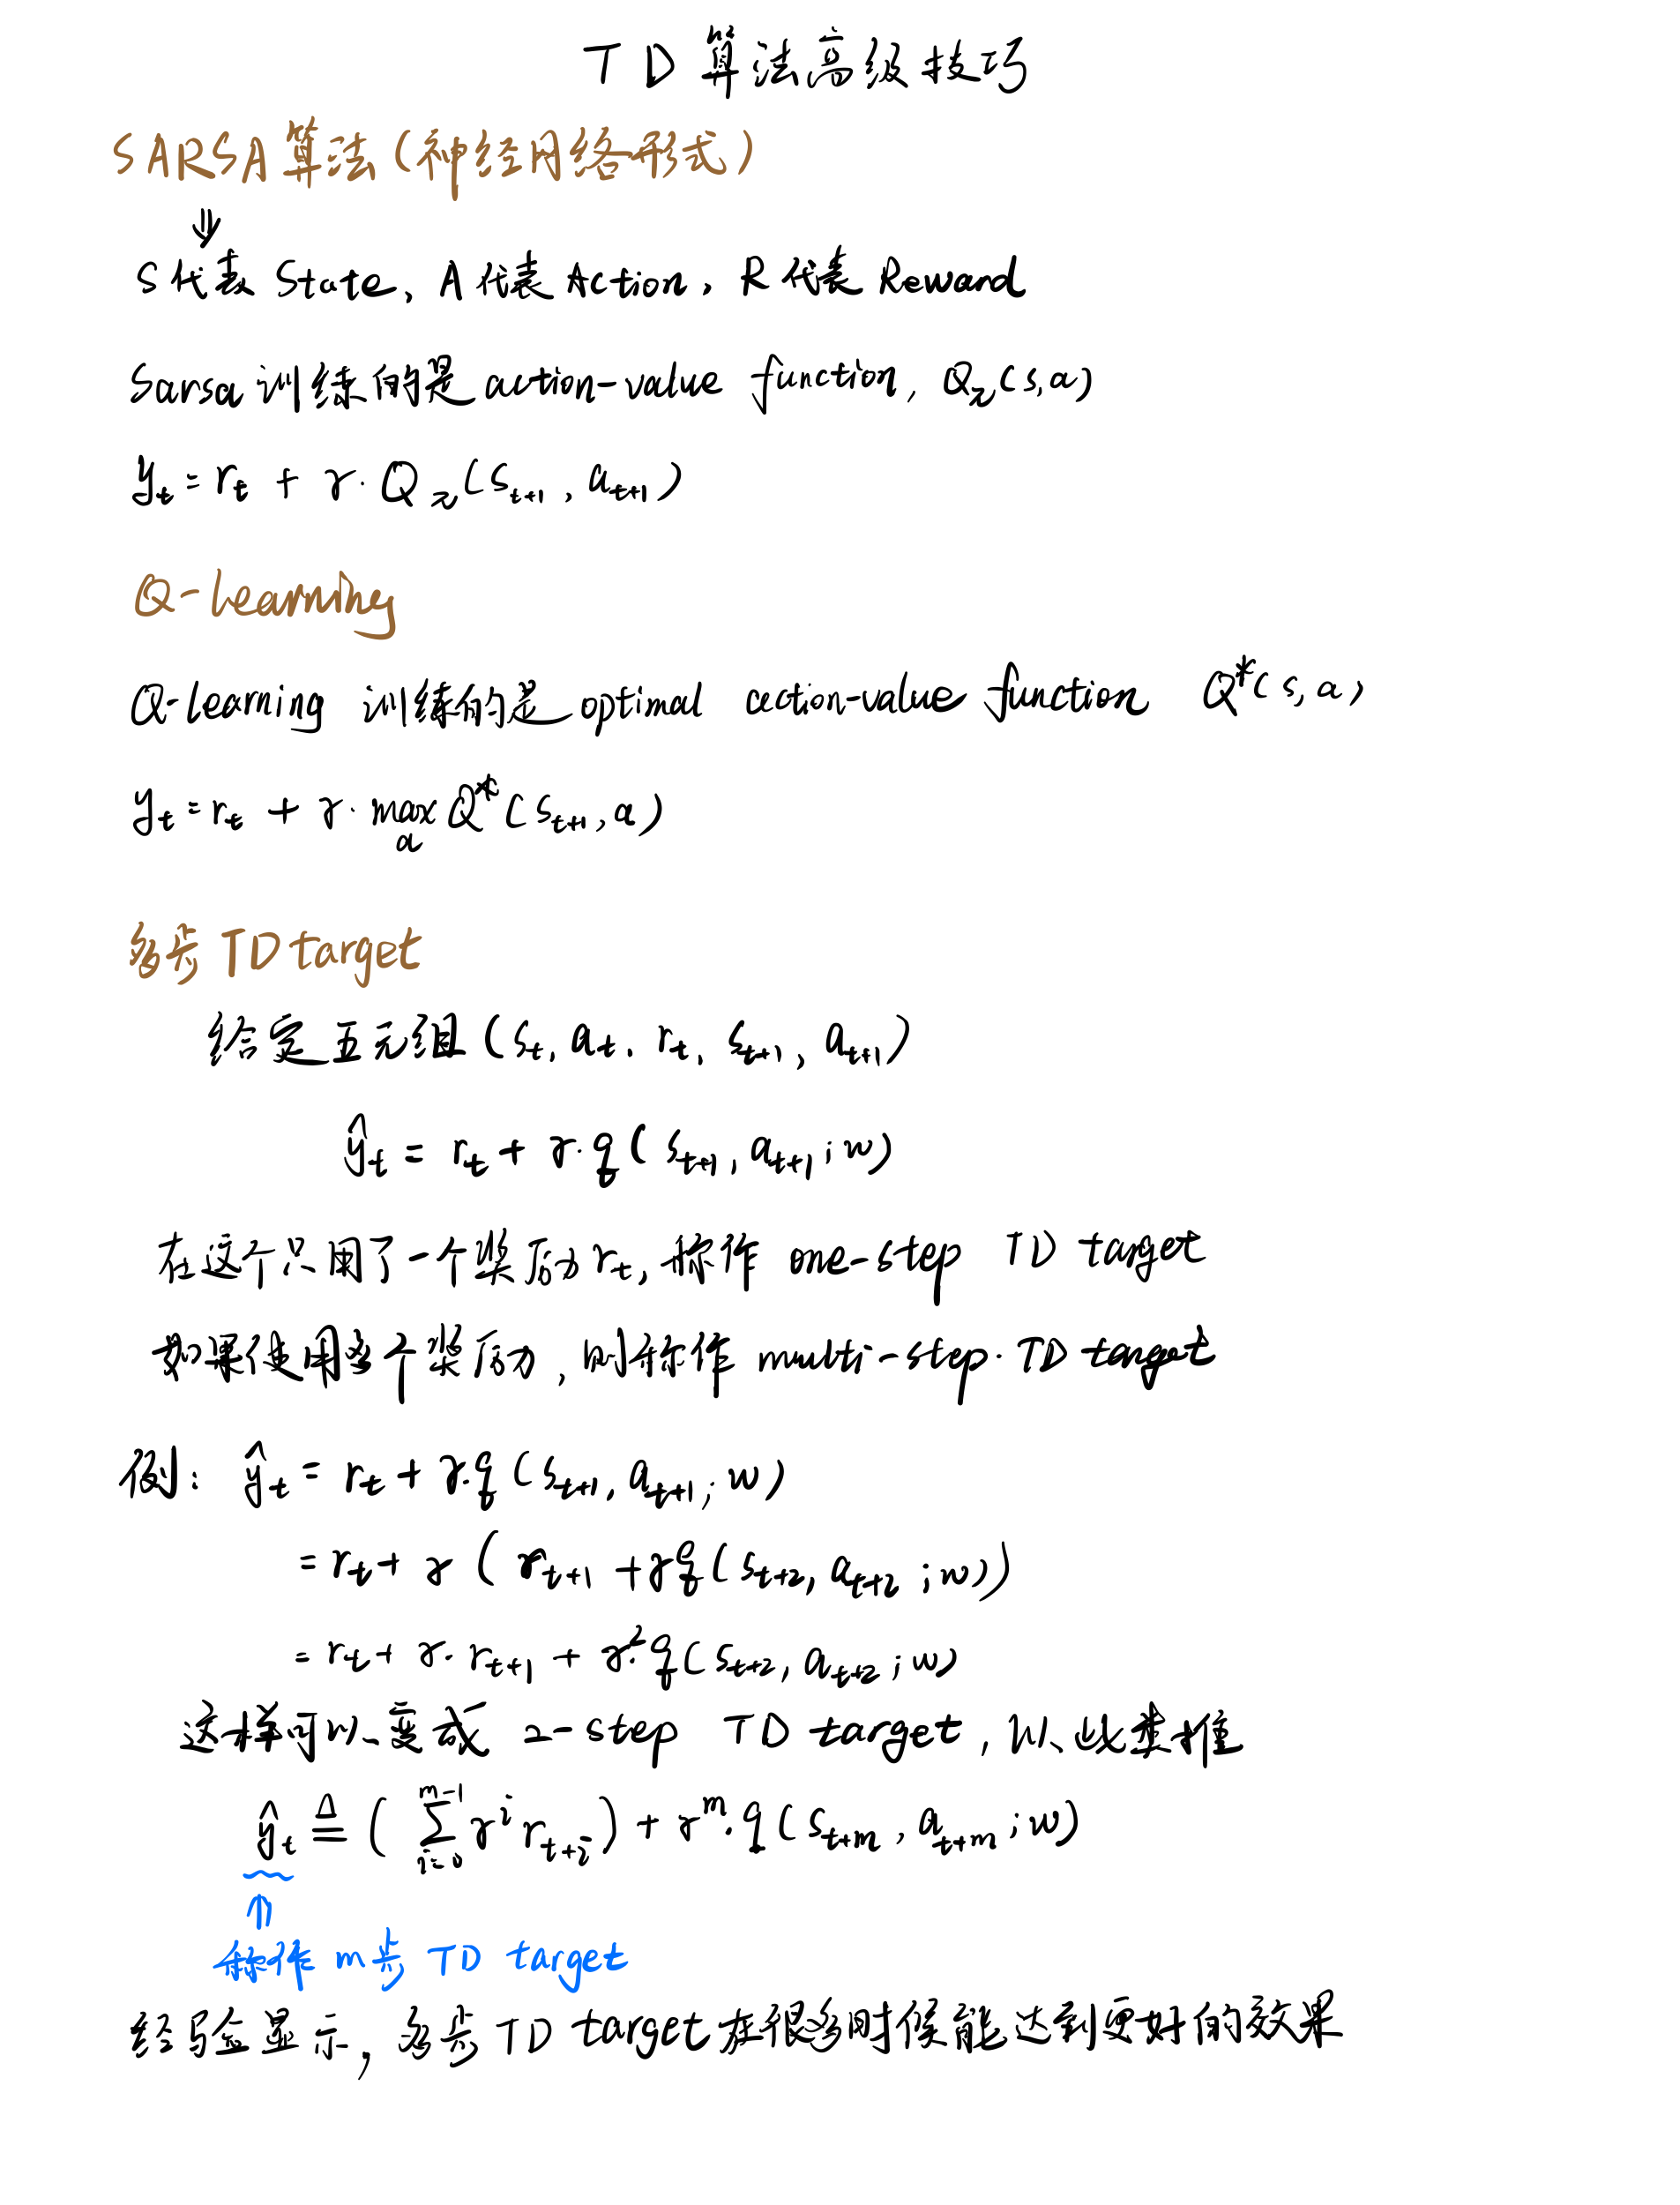 TD算法高级技巧
SARSA算法(神经网络形式)
⇓
S代表State, A代表Action, R代表Reward
Sarsa训练的是action-value function, Qπ(s,a)
y_t = r_t + γ·Qπ(s_{t+1}, a_{t+1})
Q-learning
Q-learning 训练的是 optimal action-value function Q*(s,a)
y_t = r_t + γ·max_a Q*(s_{t+1}, a)
多步TD target
给定五元组(s_t, a_t, r_t, s_{t+1}, a_{t+1})
ŷ_t = r_t + γ·q(s_{t+1}, a_{t+1}; w)
在这个只用了一个奖励r_t, 称作 one-step TD target
如果使用多个奖励, 则称作 multi-step·TD target
例: ŷ_t = r_t + γ·q(s_{t+1}, a_{t+1}; w)
= r_t + γ(r_{t+1} + γq(s_{t+2}, a_{t+2}; w))
= r_t + γ·r_{t+1} + γ²·q(s_{t+2}, a_{t+2}; w)
这样可以变成 2-step TD target, 以此类推
ŷ_t ≜ (∑_{i=0}^{m-1} γ^i r_{t+i}) + γ^m·q(s_{t+m}, a_{t+m}; w)
⇑
称作 m步 TD target
经验显示, 多步TD target在很多时候能达到更好的效果